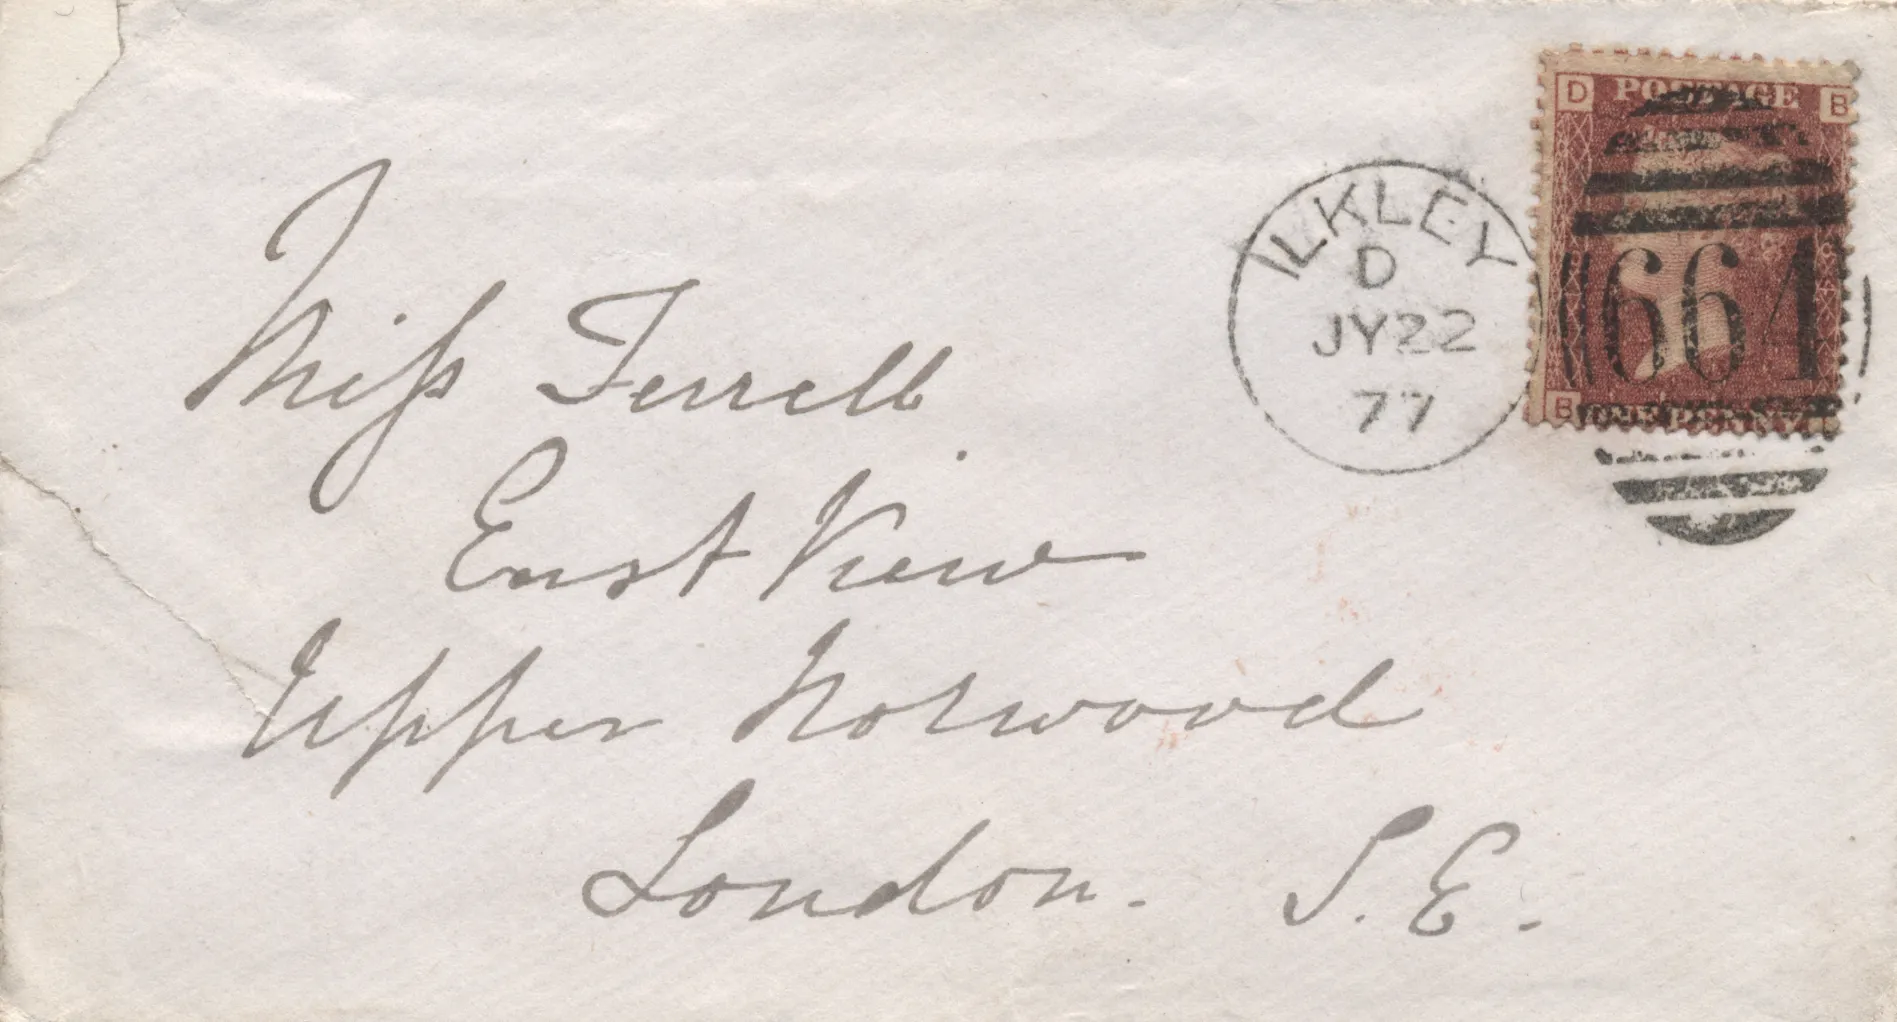 D POSTAGE B
ILKLEY
D
JY 22
77
664
B ONE PENNY
Miss Terrell
East View
Upper Norwood
London. S.E.